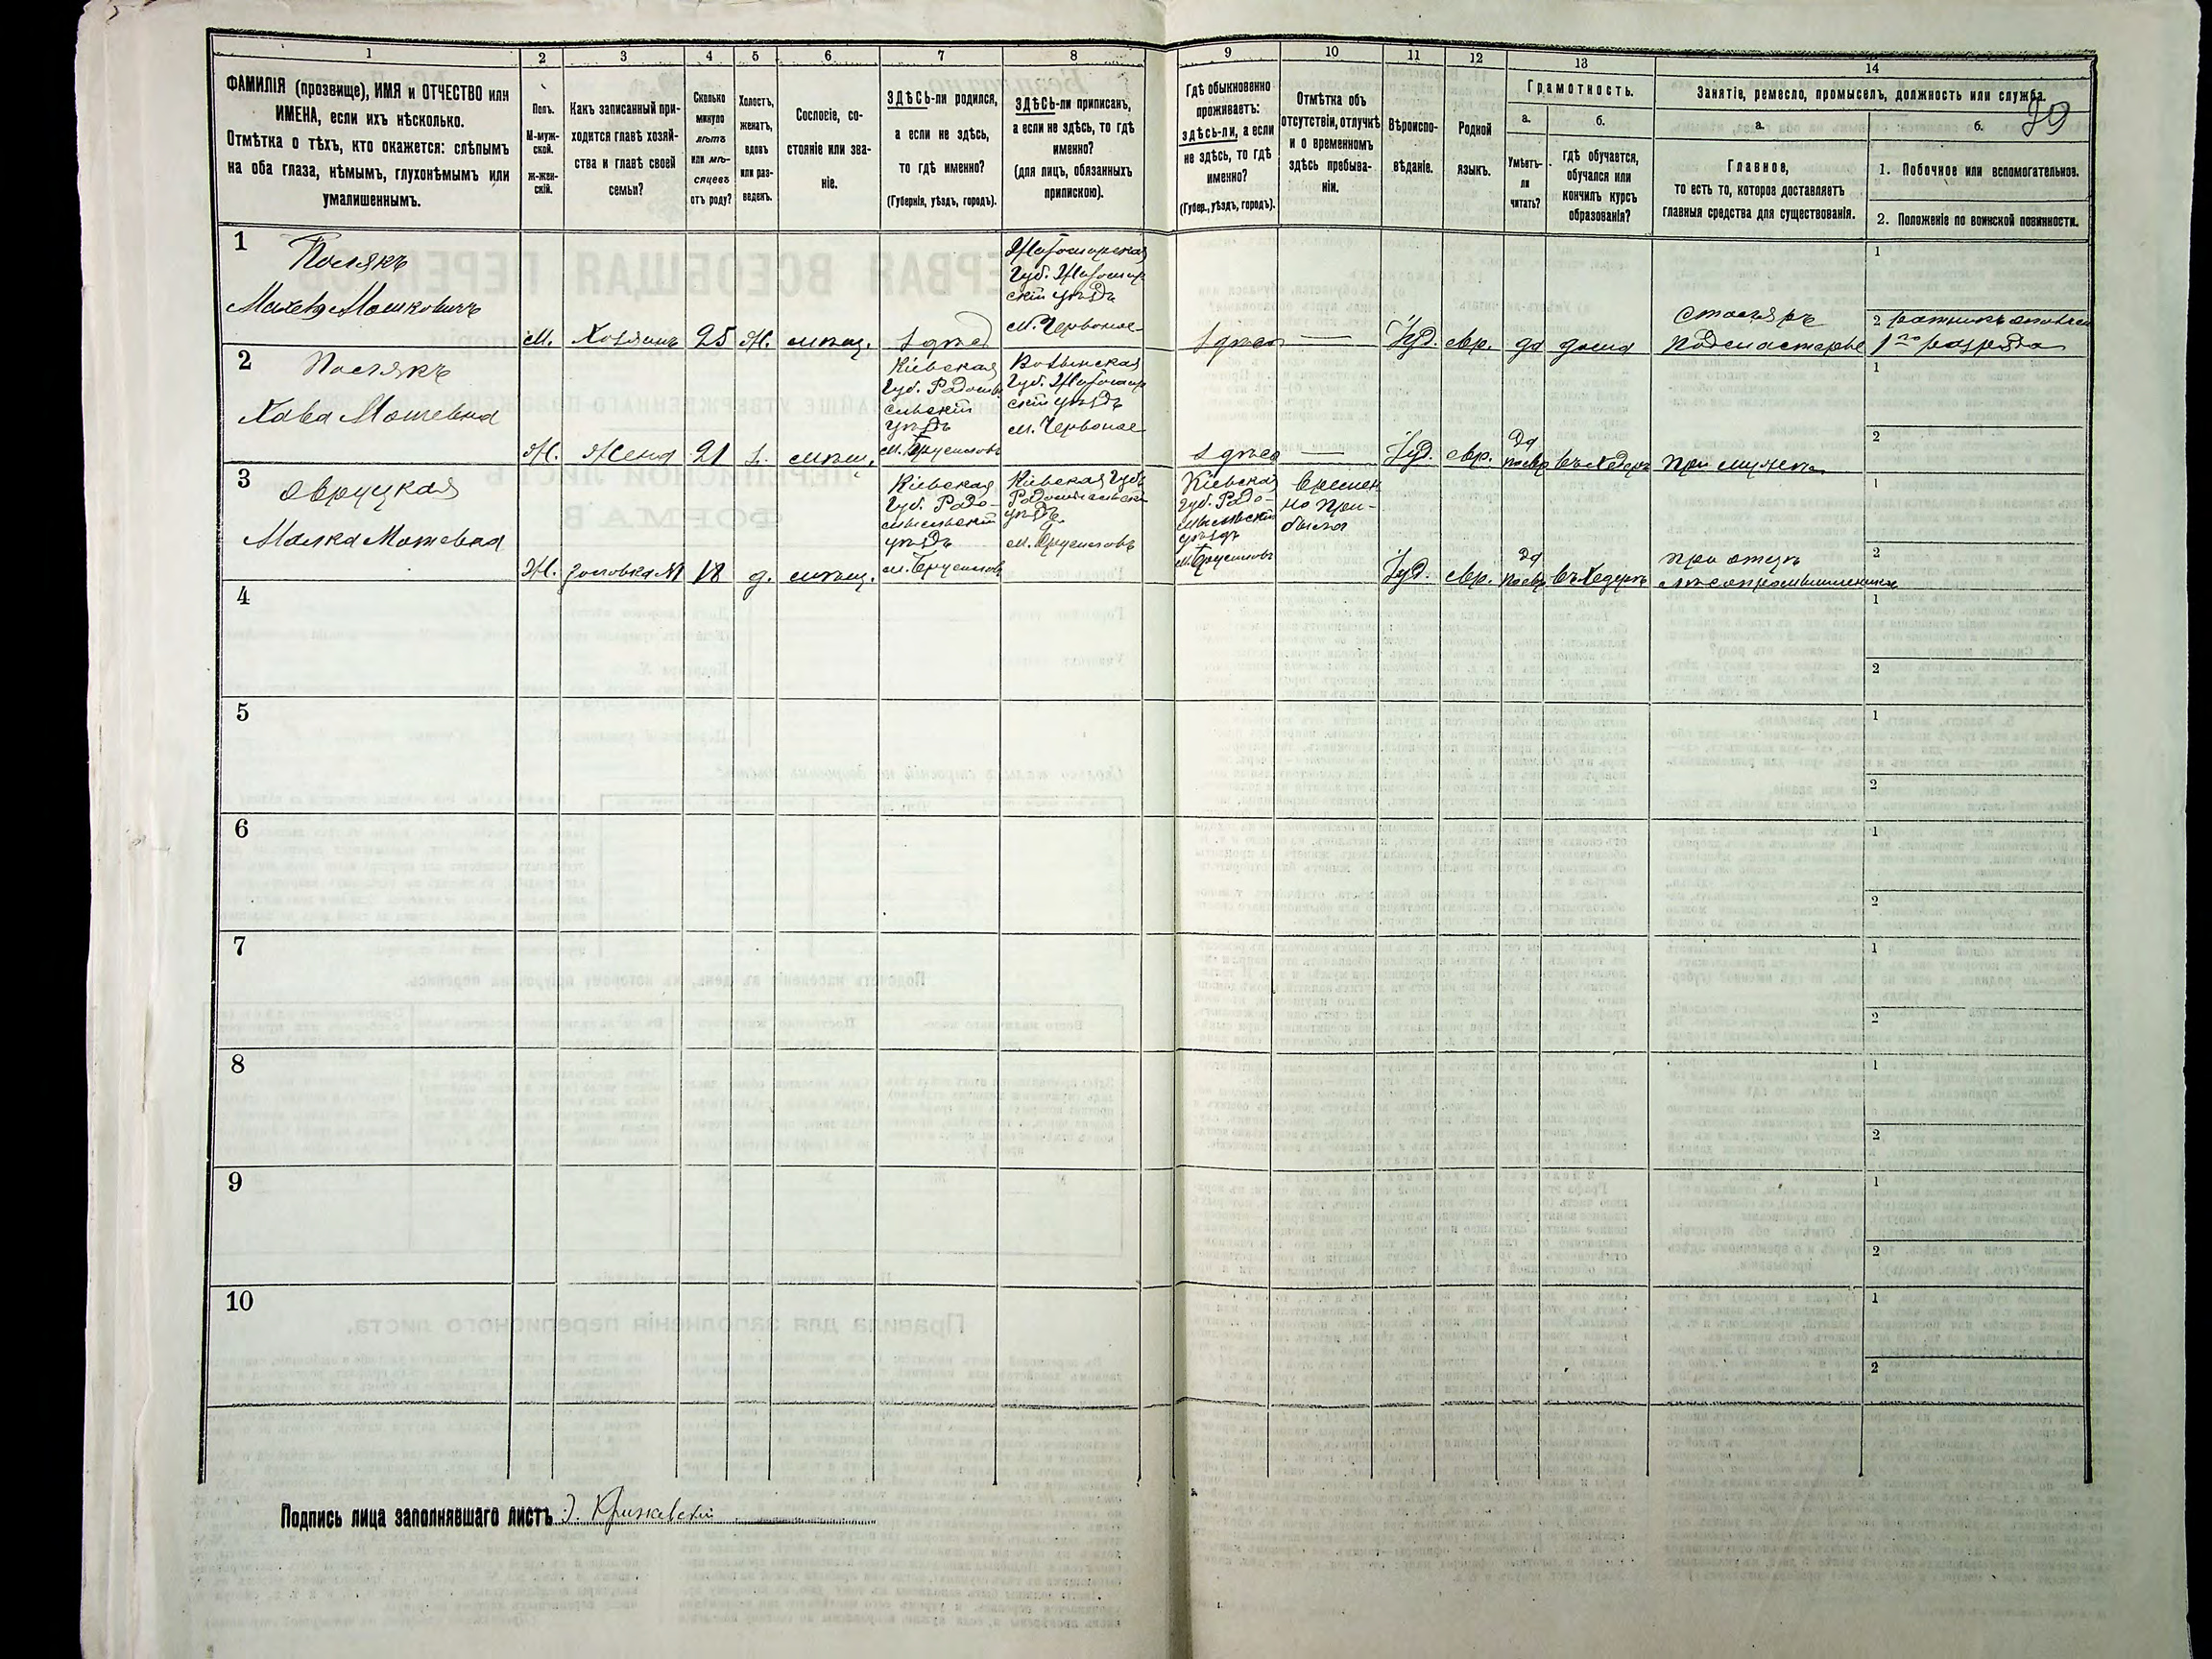 1 2 3 4 5 6 7 8 9 10 11 12 13 14
ФАМИЛІЯ (прозвище), ИМЯ и ОТЧЕСТВО или
ИМЕНА, если ихъ нѣсколько.
Отмѣтка о тѣхъ, кто окажется: слѣпымъ
на оба глаза, нѣмымъ, глухонѣмымъ или
умалишеннымъ.
Полъ.
М-муж-
ской.
ж-жен-
скій.
Какъ записанный при-
ходится главѣ хозяй-
ства и главѣ своей
семьи?
Сколько
минуло
лѣтъ
или мѣ-
сяцевъ
отъ роду?
Холостъ,
женатъ,
вдовъ
или раз-
веденъ.
Сословіе, со-
стояніе или зва-
ніе.
ЗДѢСЬ-ли родился,
а если не здѣсь,
то гдѣ именно?
(Губернія, уѣздъ, городъ).
ЗДѢСЬ-ли приписанъ,
а если не здѣсь, то гдѣ
именно?
(для лицъ, обязанныхъ
припискою).
Гдѣ обыкновенно
проживаетъ:
здѣсь-ли, а если
не здѣсь, то гдѣ
именно?
(Губер., уѣздъ, городъ).
Отмѣтка объ
отсутствіи, отлучкѣ
и о временномъ
здѣсь пребыва-
ніи.
Вѣроиспо-
вѣданіе.
Родной
языкъ.
Грамотность.
а.
Умѣетъ-
ли
читать?
б.
гдѣ обучается,
обучался или
кончилъ курсъ
образованія?
Занятіе, ремесло, промыселъ, должность или служба.
а.
Главное,
то есть то, которое доставляетъ
главныя средства для существованія.
б.
1. Побочное или вспомогательное.
2. Положеніе по воинской повинности.
1
Полякъ
Мошковичъ
М.
Хозяинъ
25
Ж.
мѣщ.
Здѣсь
Житомирская
Губ. Житомир
скій уѣздъ
м. Червоное
Здѣсь
—
Іуд.
евр.
да
дома
столяръ
подмастерье
1
2 ратникъ ополчен
1го разряда
2
Полякъ
Хава Мошевна
Ж.
Жена
21
З.
мѣщ.
Кіевская
Губ. Радомы
сльскій
уѣздъ
м. Брусиловъ
Волынская
Губ. Житомир
скій уѣздъ
м. Червоное
Здѣсь
—
Іуд.
евр.
да
по евр
въ Хедерѣ
при мужѣ
1
2
3
Овруцкая
Малка Мошевна
Ж.
золовка
18
д.
мѣщ.
Кіевская
Губ. Радо-
мысльскій
уѣздъ
м. Брусиловъ
Кіевская Губ.
Радомысльскій
уѣздъ
м. Брусиловъ
Кіевская
Губ. Радо-
мысльскій
уѣздъ
м. Брусиловъ
Времен
но при-
была
Іуд.
евр.
да
по евр
въ Хедерѣ
при отцѣ
лѣсопромышленникѣ
1
2
4
1
2
5
1
2
6
1
2
7
1
2
8
1
2
9
1
2
10
1
2
Подпись лица заполнявшаго листъ